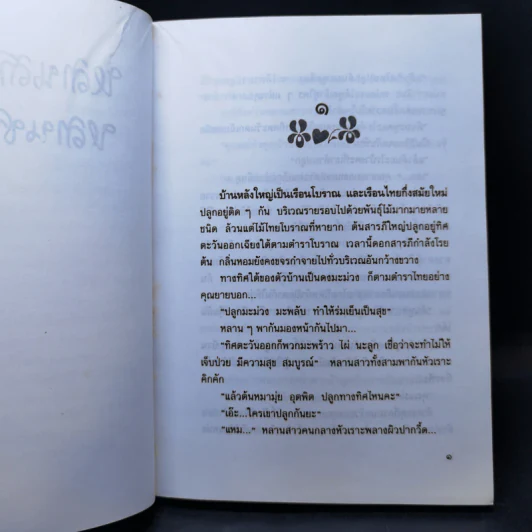 ๑
บ้านหลังใหญ่เป็นเรือนโบราณ และเรือนไทยกึ่งสมัยใหม่
ปลูกอยู่ติด ๆ กัน บริเวณรายรอบไปด้วยพันธุ์ไม้มากมายหลาย
ชนิด ล้วนแต่ไม้ไทยโบราณที่หายาก ต้นสารภีใหญ่ปลูกอยู่ทิศ
ตะวันออกเฉียงใต้ตามตำราโบราณ เวลานี้ดอกสารภีกำลังโรย
ต้น กลิ่นหอมยังคงขจรกำจายไปทั่วบริเวณอันกว้างขวาง
ทางทิศใต้ของตัวบ้านเป็นดงมะม่วง ก็ตามตำราไทยอย่าง
คุณยายบอก...
"ปลูกมะม่วง มะพลับ ทำให้ร่มเย็นเป็นสุข"
หลาน ๆ พากันมองหน้ากันไปมา...
"ทิศตะวันออกก็พวกมะพร้าว ไผ่ นะลูก เชื่อว่าจะทำไม่ให้
เจ็บป่วย มีความสุข สมบูรณ์" หลานสาวทั้งสามพากันหัวเราะ
คิกคัก
"แล้วต้นหมามุ่ย อุตพิด ปลูกทางทิศไหนคะ"
"เอ๊ะ...ใครเขาปลูกกันยะ"
"แหม..." หลานสาวคนกลางหัวเราะพลางผิวปากวี้ด...
๑